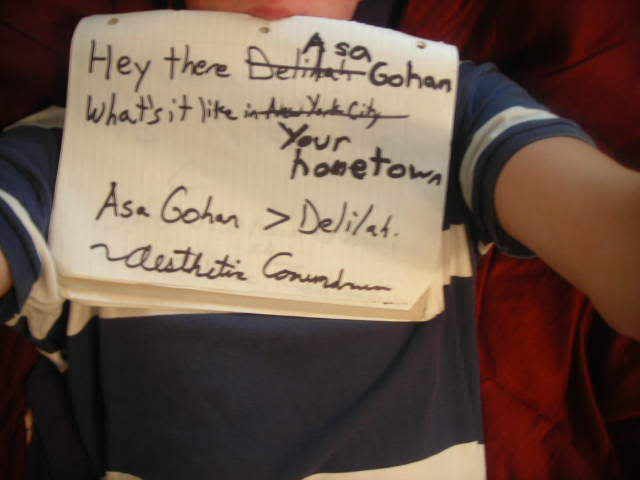 Hey there Delilah Asa Gohan
What's it like in New York City
Your
hometown
Asa Gohan > Delilah.
~Aesthetic Conundrum